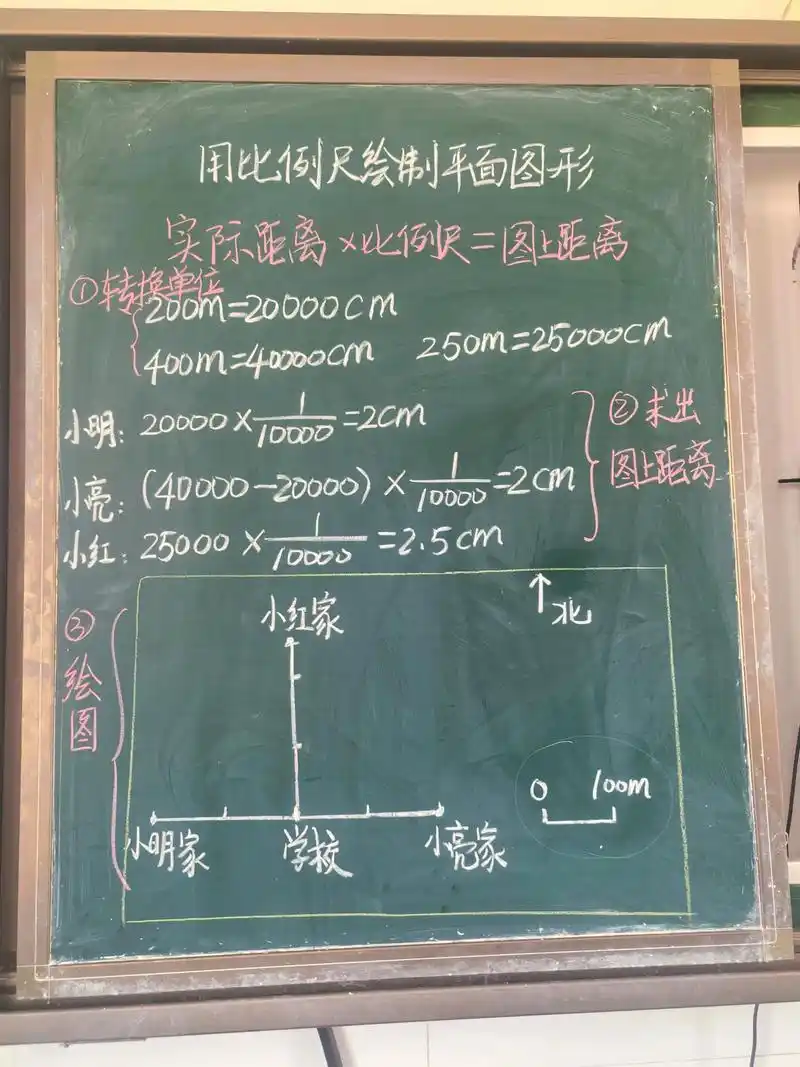 用比例尺绘制平面图形
实际距离×比例尺=图上距离
①转换单位
200m=20000cm
400m=40000cm 250m=25000cm
小明: 20000×1/10000=2cm
小亮: (40000-20000)×1/10000=2cm
小红: 25000×1/10000=2.5cm
②求出
图上距离
③绘图
小红家
↑北
0 100m
小明家 学校 小亮家